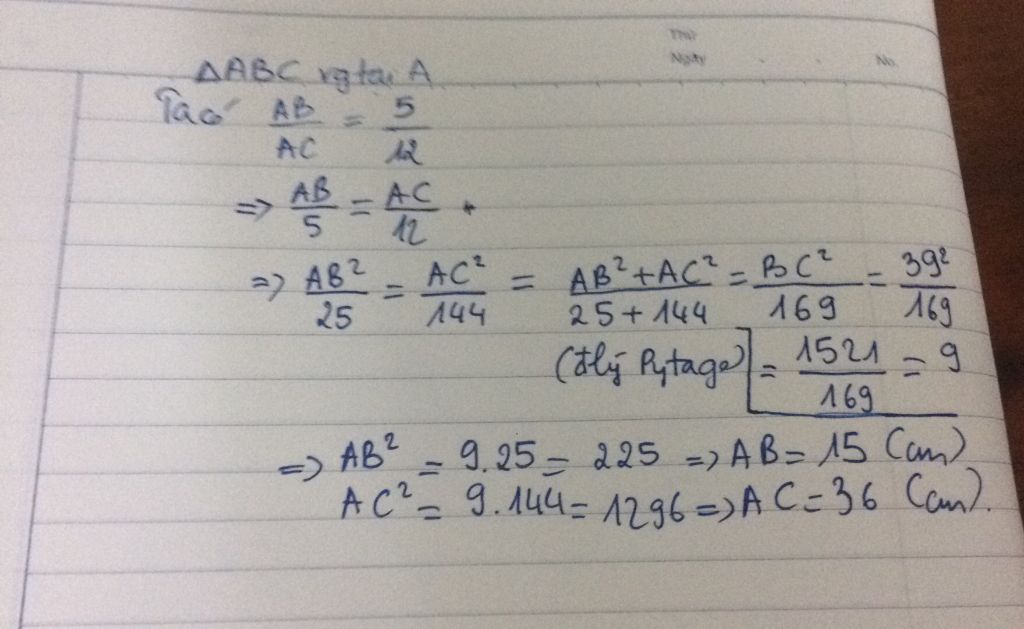 Thứ
Ngày No.
ΔABC vg tại A
Ta có AB/AC = 5/12
=> AB/5 = AC/12
=> AB²/25 = AC²/144 = AB²+AC²/25+144 = BC²/169 = 39²/169
(đlý Pytago) = 1521/169 = 9
=> AB² = 9.25 = 225 => AB = 15 (cm)
AC² = 9.144 = 1296 => AC = 36 (cm).